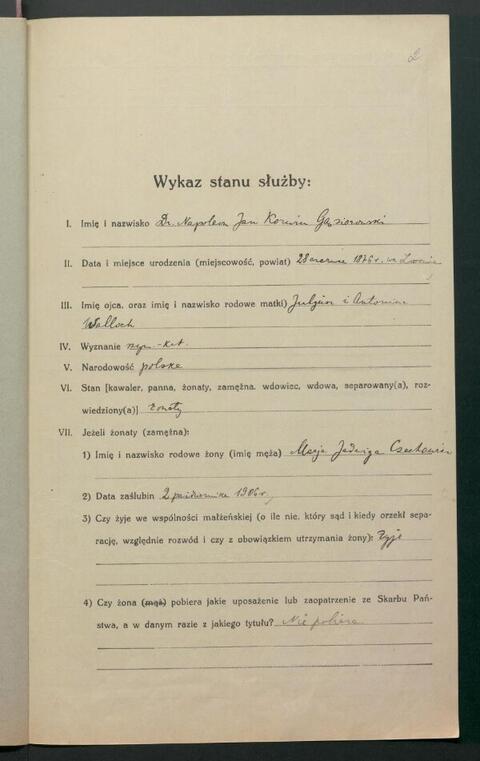 2
Wykaz stanu służby:
I. Imię i nazwisko Dr. Napoleon Jan Korwin Gąsiorowski
II. Data i miejsce urodzenia (miejscowość, powiat) 28 czerwca 1876 r. we Lwowie
III. Imię ojca, oraz imię i nazwisko rodowe matki) Juljan i Antonina
Walloch
IV. Wyznanie rzym.-kat.
V. Narodowość polska
VI. Stan [kawaler, panna, żonaty, zamężna, wdowiec, wdowa, separowany(a), roz-
wiedziony(a)] żonaty
VII. Jeżeli żonaty (zamężna):
1) Imię i nazwisko rodowe żony (imię męża) Marja Jadwiga
2) Data zaślubin 2 października 1906 r.
3) Czy żyje we wspólności małżeńskiej (o ile nie, który sąd i kiedy orzekł sepa-
rację, względnie rozwód i czy z obowiązkiem utrzymania żony): Żyje
4) Czy żona (mąż) pobiera jakie uposażenie lub zaopatrzenie ze Skarbu Pań-
stwa, a w danym razie z jakiego tytułu? Nie pobiera